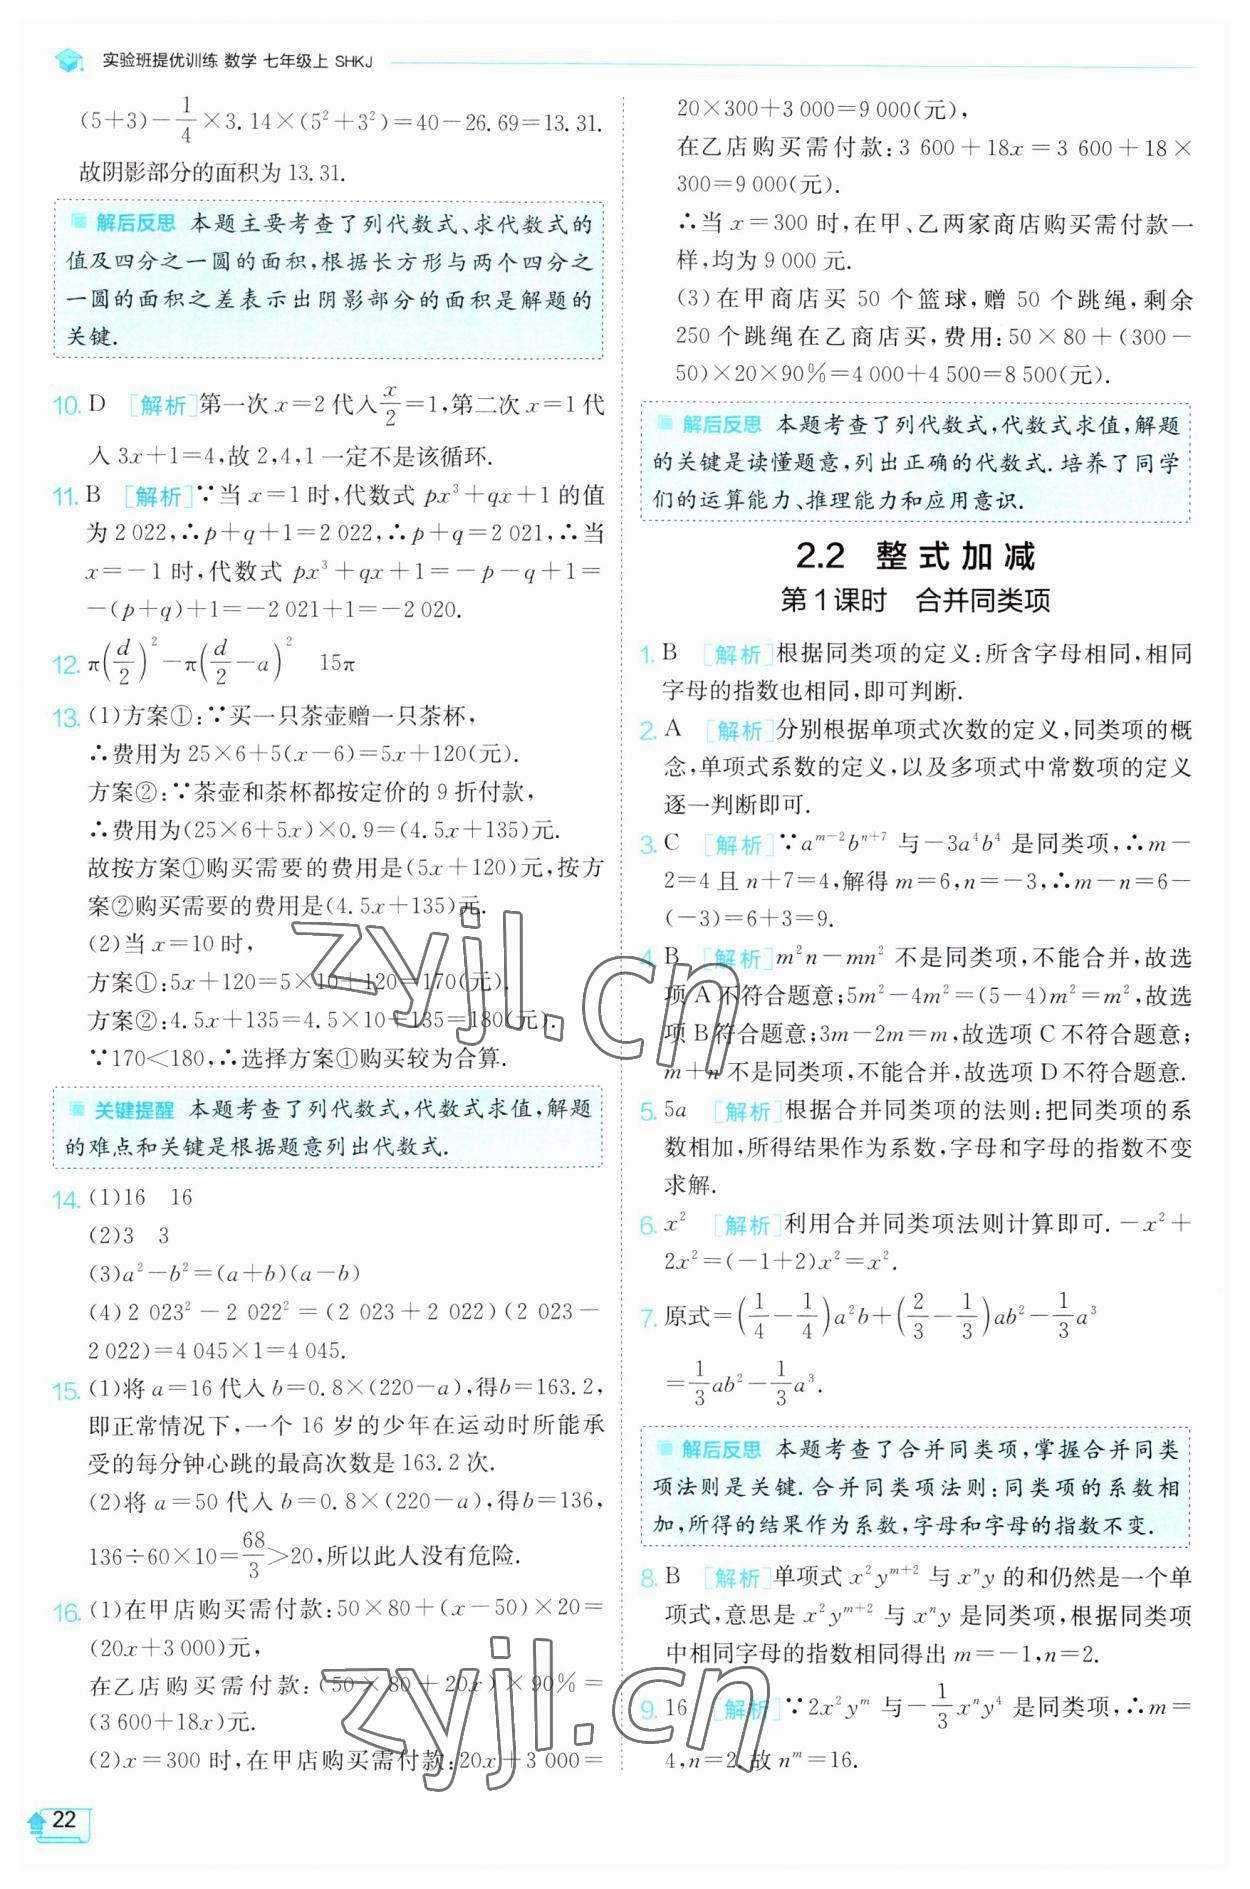 实验班提优训练 数学 七年级上 SHKJ
(5+3)-1/4×3.14×(5²+3²)=40-26.69=13.31.
故阴影部分的面积为13.31.
解后反思 本题主要考查了列代数式、求代数式的
值及四分之一圆的面积,根据长方形与两个四分之
一圆的面积之差表示出阴影部分的面积是解题的
关键.
10. D [解析]第一次x=2代入x/2=1,第二次x=1代
入3x+1=4,故2,4,1一定不是该循环.
11. B [解析]∵当x=1时,代数式px³+qx+1的值
为2 022,∴p+q+1=2 022,∴p+q=2 021,∴当
x=-1时,代数式px³+qx+1=-p-q+1=
-(p+q)+1=-2 021+1=-2 020.
12. π(d/2)²-π(d/2-a)² 15π
13. (1)方案①:∵买一只茶壶赠一只茶杯,
∴费用为25×6+5(x-6)=5x+120(元).
方案②:∵茶壶和茶杯都按定价的9折付款,
∴费用为(25×6+5x)×0.9=(4.5x+135)元.
故按方案①购买需要的费用是(5x+120)元,按方
案②购买需要的费用是(4.5x+135)元.
(2)当x=10时,
方案①:5x+120=5×10+120=170(元).
方案②:4.5x+135=4.5×10+135=180(元).
∵170<180,∴选择方案①购买较为合算.
关键提醒 本题考查了列代数式,代数式求值,解题
的难点和关键是根据题意列出代数式.
14. (1)16 16
(2)3 3
(3)a²-b²=(a+b)(a-b)
(4)2 023²-2 022²=(2 023+2 022)(2 023-
2 022)=4 045×1=4 045.
15. (1)将a=16代入b=0.8×(220-a),得b=163.2,
即正常情况下,一个16岁的少年在运动时所能承
受的每分钟心跳的最高次数是163.2次.
(2)将a=50代入b=0.8×(220-a),得b=136,
136÷60×10=68/3>20,所以此人没有危险.
16. (1)在甲店购买需付款:50×80+(x-50)×20=
(20x+3 000)元,
在乙店购买需付款:(50×80+20x)×90%=
(3 600+18x)元.
(2)x=300时,在甲店购买需付款:20x+3 000=
22
20×300+3 000=9 000(元),
在乙店购买需付款:3 600+18x=3 600+18×
300=9 000(元).
∴当x=300时,在甲、乙两家商店购买需付款一
样,均为9 000元.
(3)在甲商店买50个篮球,赠50个跳绳,剩余
250个跳绳在乙商店买,费用:50×80+(300-
50)×20×90%=4 000+4 500=8 500(元).
解后反思 本题考查了列代数式,代数式求值,解题
的关键是读懂题意,列出正确的代数式.培养了同学
们的运算能力、推理能力和应用意识.
2.2 整式加减
第1课时 合并同类项
1. B [解析]根据同类项的定义:所含字母相同,相同
字母的指数也相同,即可判断.
2. A [解析]分别根据单项式次数的定义,同类项的概
念,单项式系数的定义,以及多项式中常数项的定义
逐一判断即可.
3. C [解析]∵aᵐ⁻²bⁿ⁺⁷与-3a⁴b⁴是同类项,∴m-
2=4且n+7=4,解得m=6,n=-3,∴m-n=6-
(-3)=6+3=9.
4. B [解析]m²n-mn²不是同类项,不能合并,故选
项A不符合题意;5m²-4m²=(5-4)m²=m²,故选
项B符合题意;3m-2m=m,故选项C不符合题意;
m+n不是同类项,不能合并,故选项D不符合题意.
5. 5a [解析]根据合并同类项的法则:把同类项的系
数相加,所得结果作为系数,字母和字母的指数不变
求解.
6. x² [解析]利用合并同类项法则计算即可.-x²+
2x²=(-1+2)x²=x².
7. 原式=(1/4-1/4)a²b+(2/3-1/3)ab²-1/3a³
=1/3ab²-1/3a³.
解后反思 本题考查了合并同类项,掌握合并同类
项法则是关键.合并同类项法则:同类项的系数相
加,所得的结果作为系数,字母和字母的指数不变.
8. B [解析]单项式x²yᵐ⁺²与xⁿy的和仍然是一个单
项式,意思是x²yᵐ⁺²与xⁿy是同类项,根据同类项
中相同字母的指数相同得出m=-1,n=2.
9. 16 [解析]∵2x²yᵐ与-1/3xⁿy⁴是同类项,∴m=
4,n=2.故nᵐ=16.
zyjl.cn
zyjl.cn